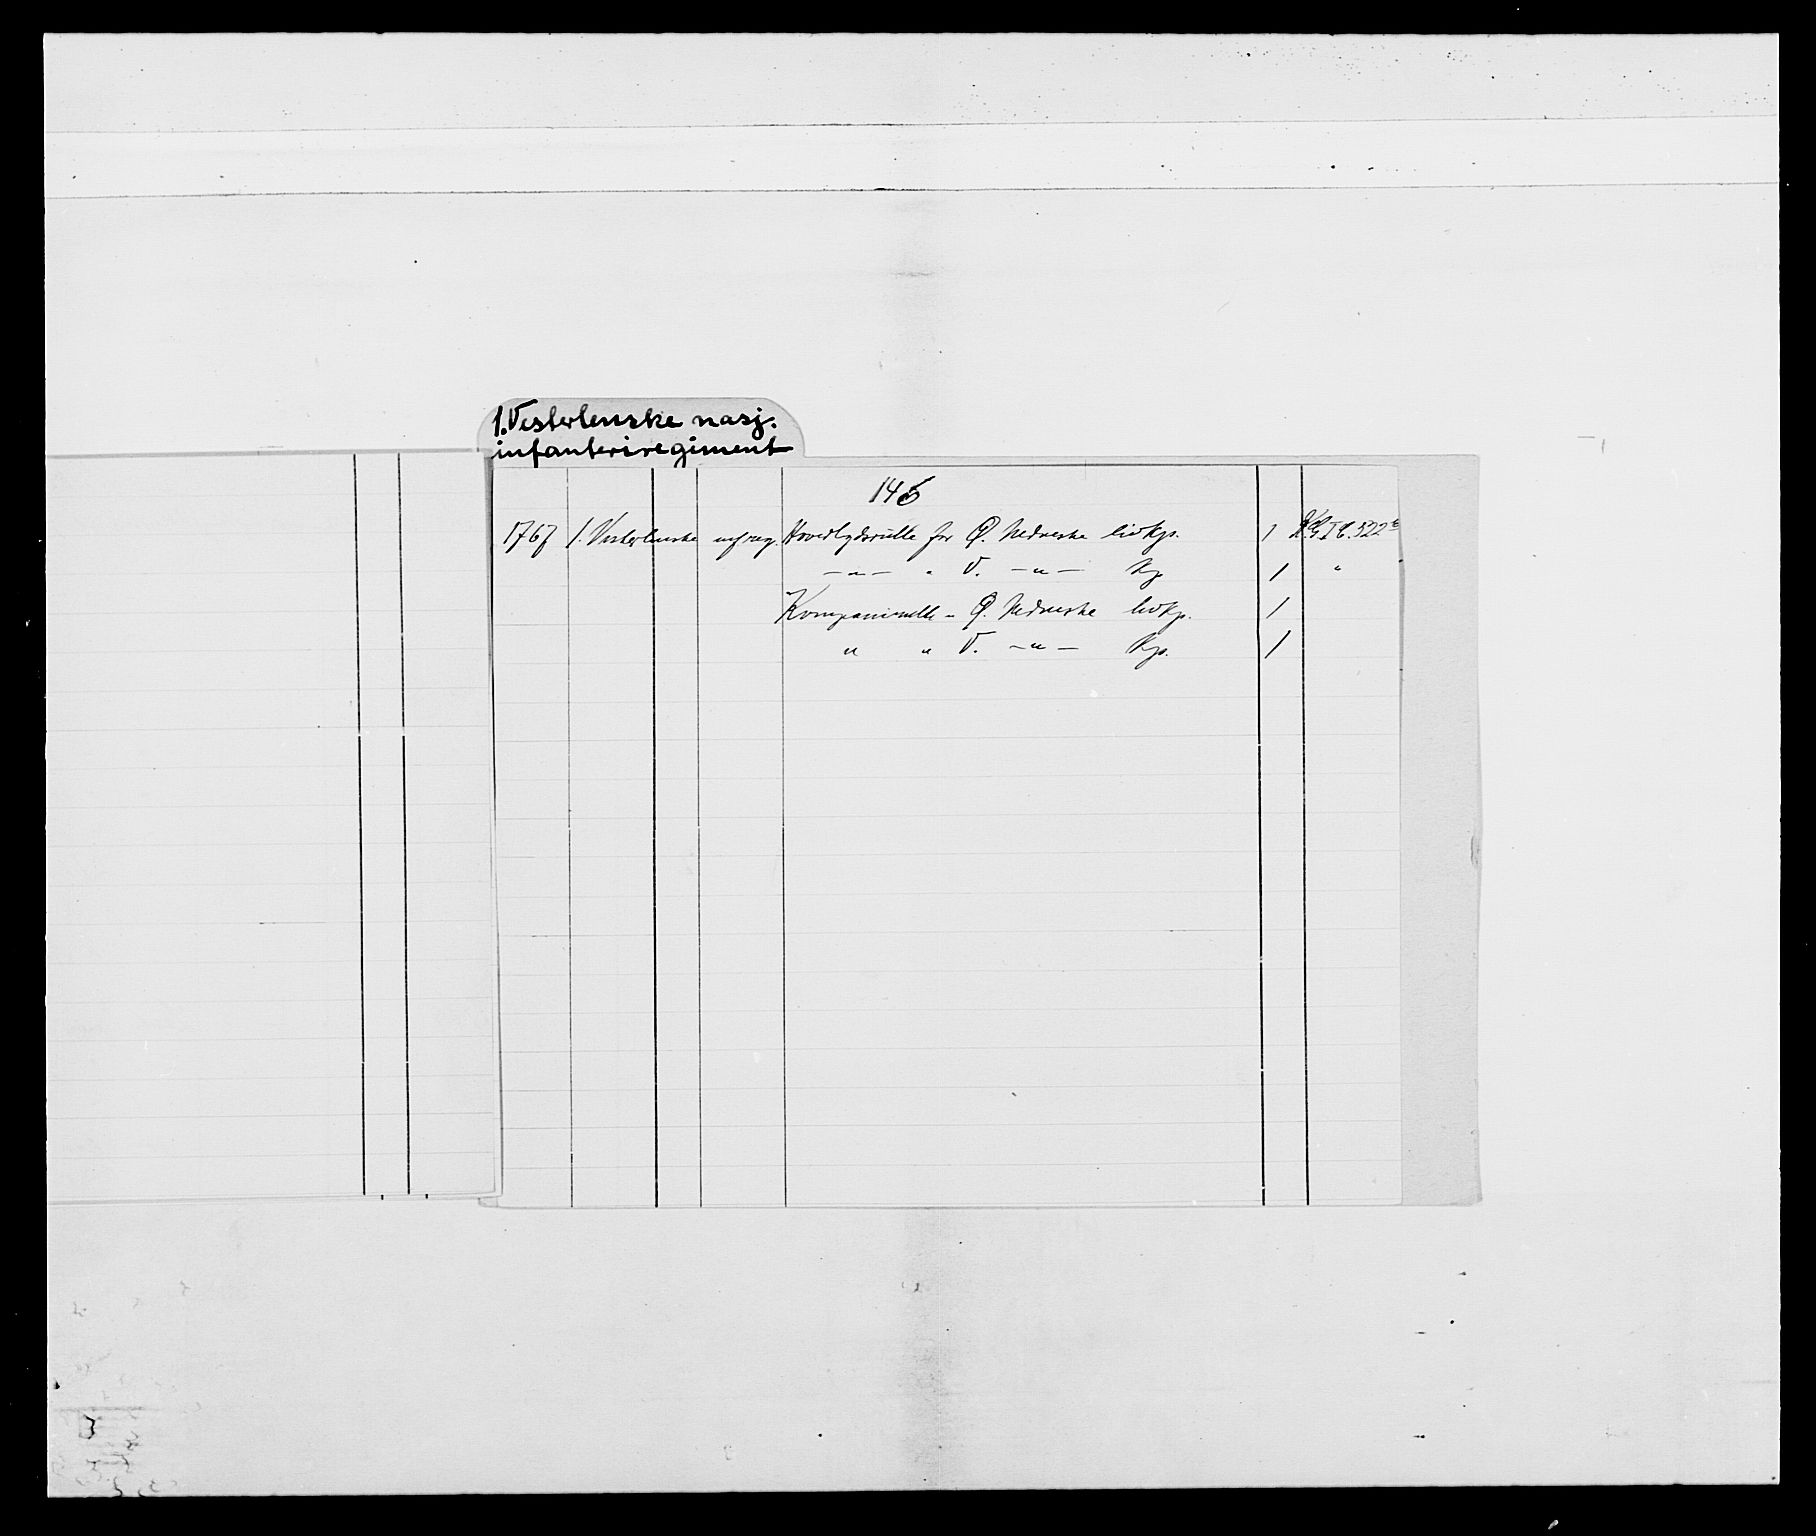 1. Vesterlenske nasj.
infanteriregiment
146
1767 1. Vesterlenske infreg. Hovedlydsrulle for Ø. Nedneske livkp. 1 KGIC.522
— " — " V. — " — Kp. 1 "
Kompanirulle " Ø. Nedneske livkp. 1
" " V. — " — Kp. 1